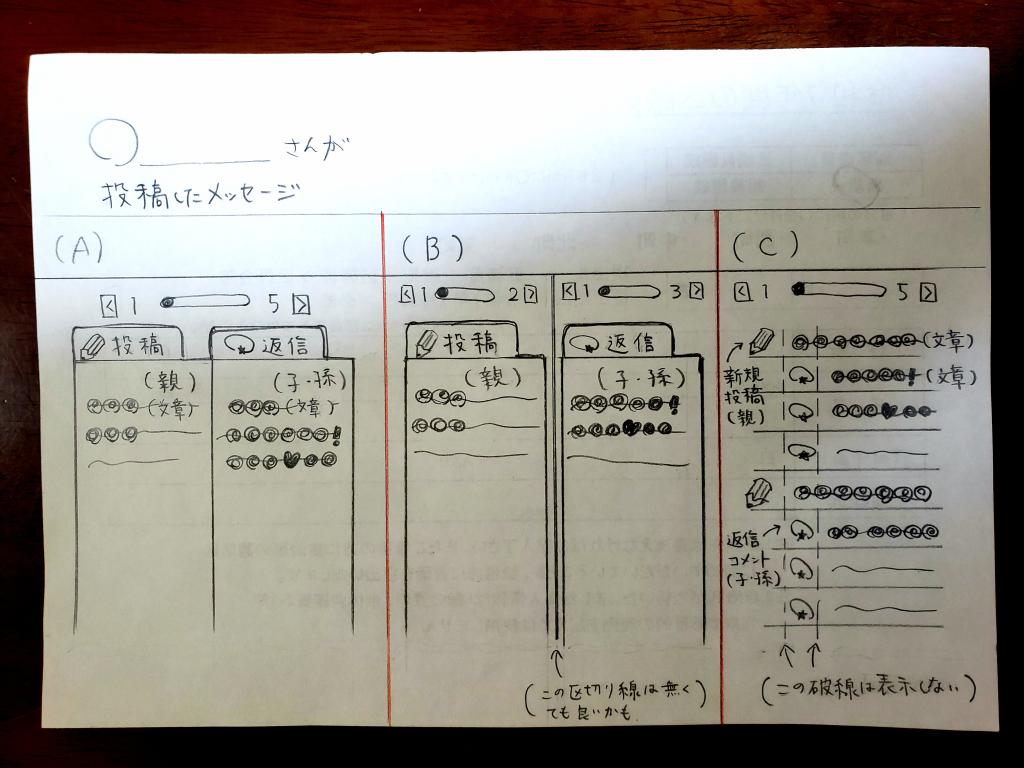 さんが
投稿したメッセージ
(A)
< 1 5 >
投稿 返信
(親) (子・孫)
(文章) (文章)
(B)
< 1 2 > < 1 3 >
投稿 返信
(親) (子・孫)
(この区切り線は無く
ても良いかも)
(C)
< 1 5 >
(文章)
(文章)
新規
投稿
(親)
返信
コメント
(子・孫)
(この破線は表示しない)